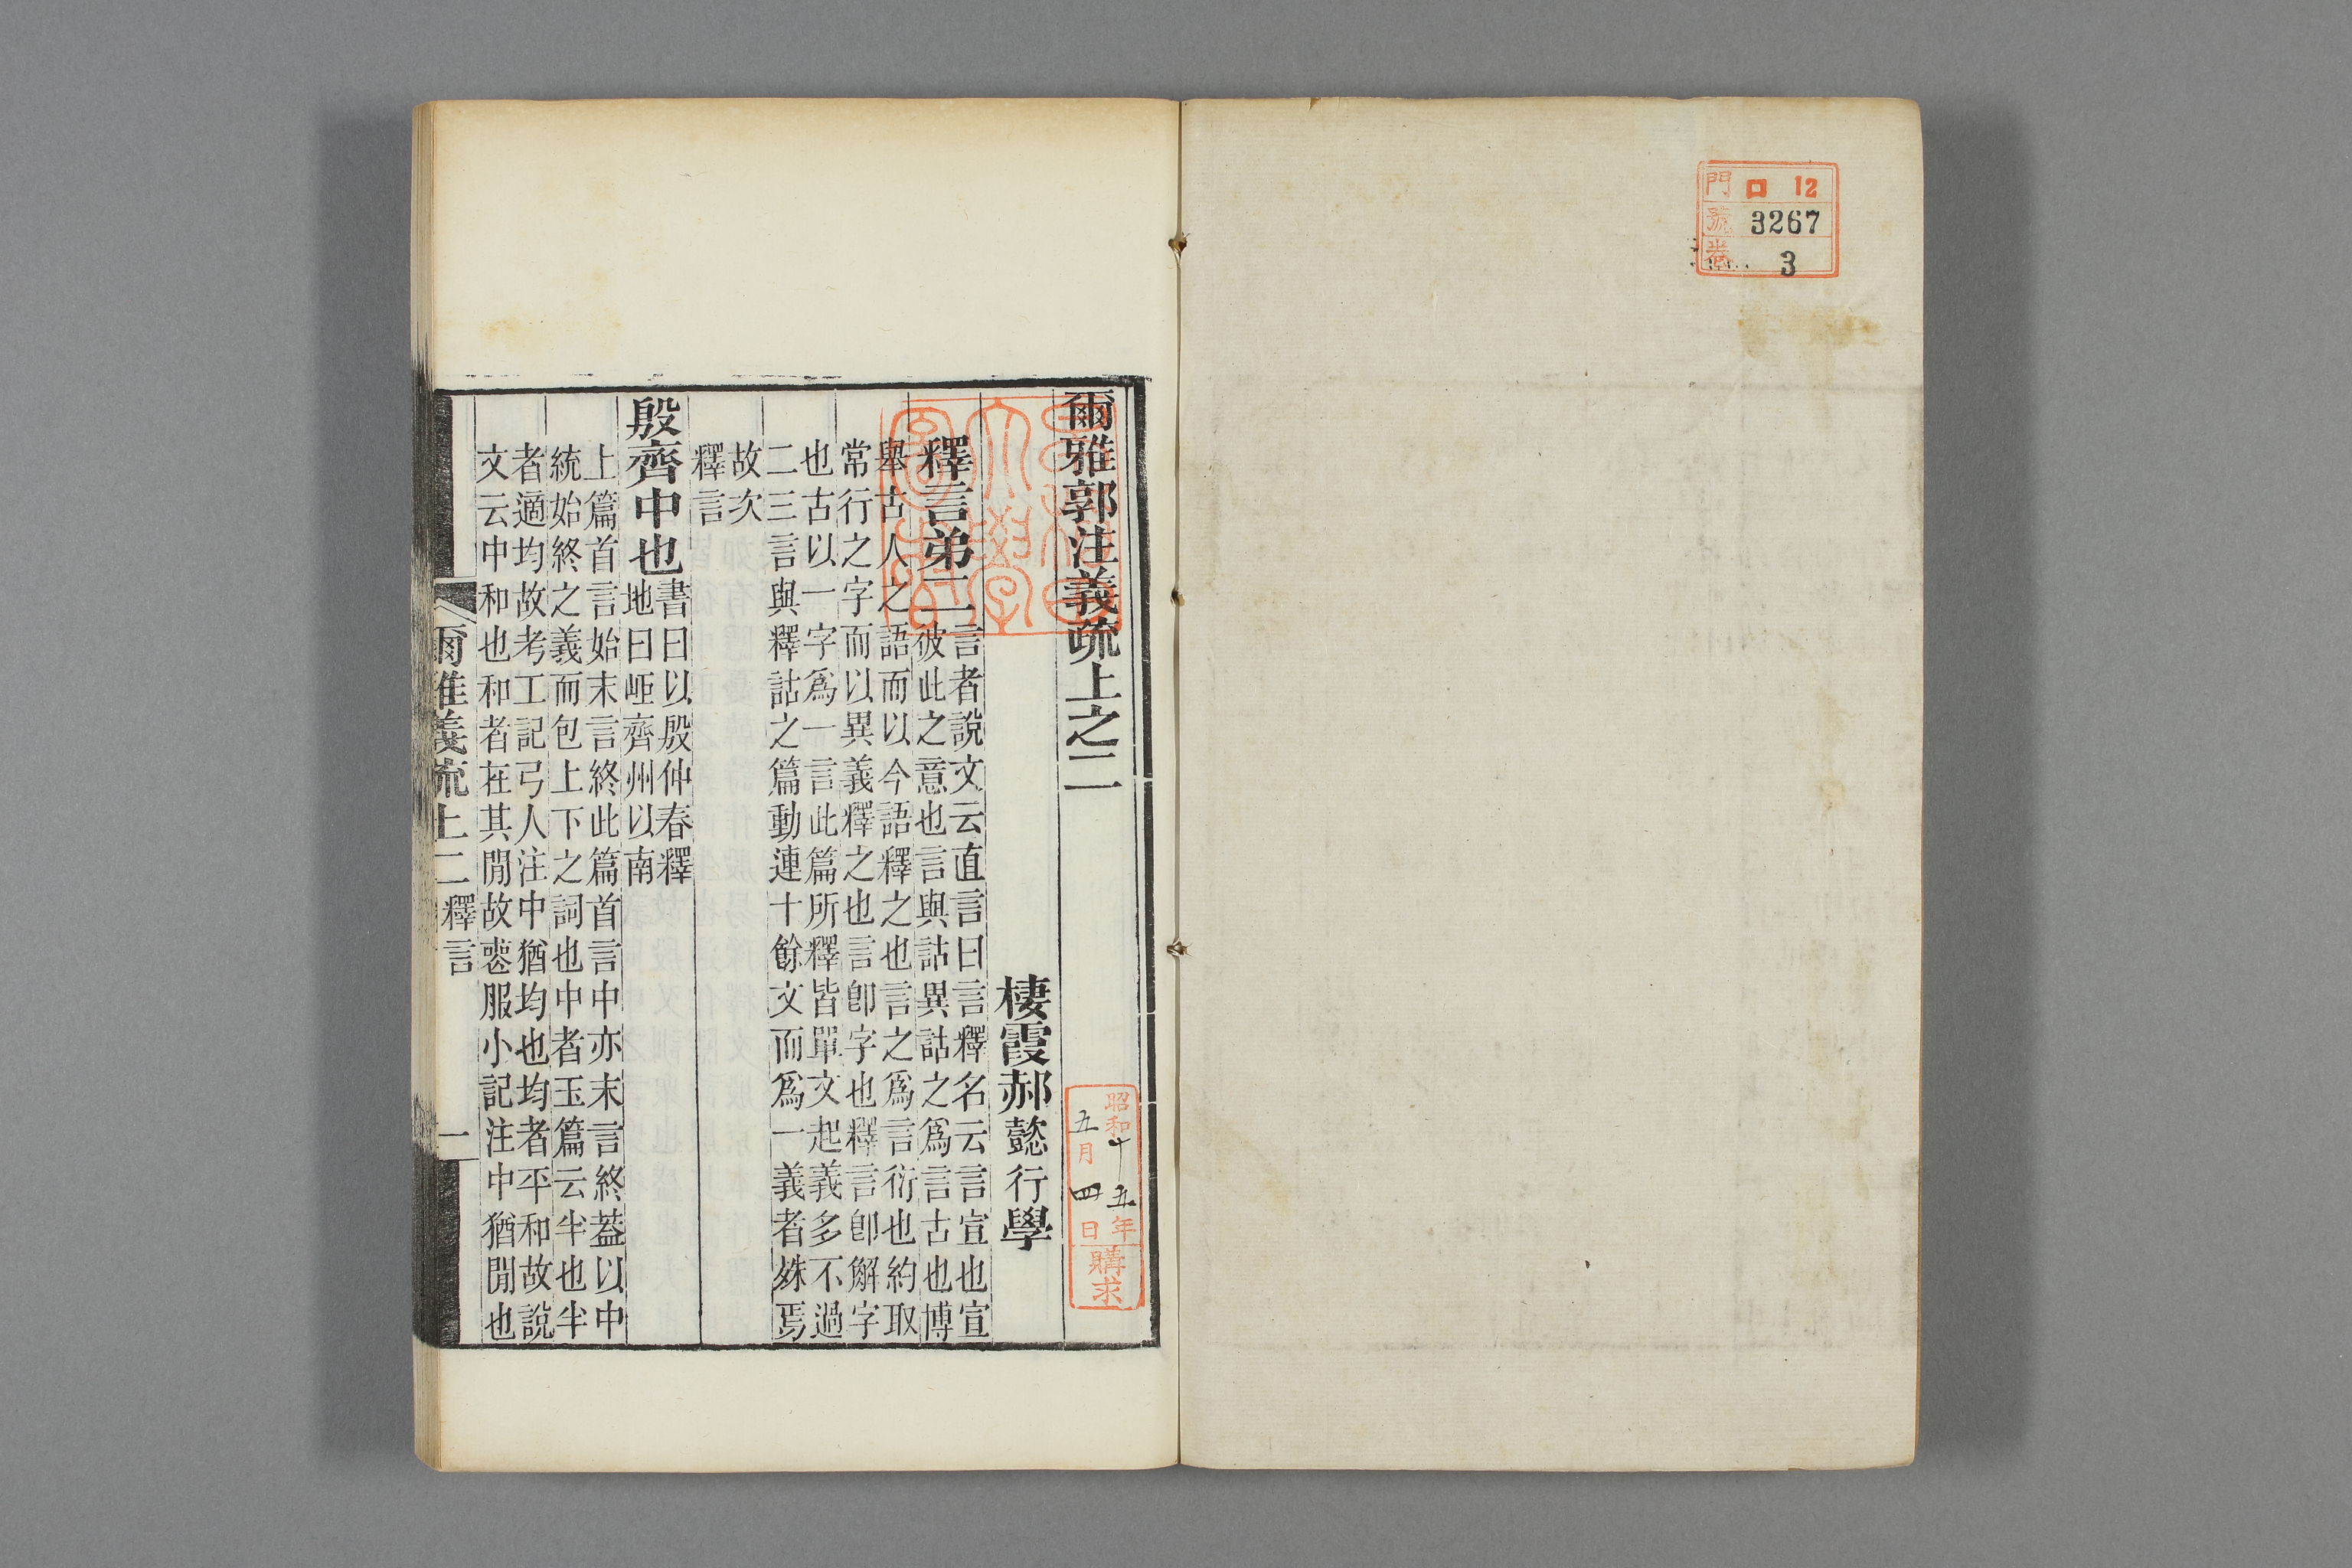 門 口 12
號 3267
卷 3
爾雅郭注義疏上之二
棲霞郝懿行學
昭和十五年
五月四日
購求
釋言弟二
言者說文云直言曰言釋名云言宣也宣
彼此之意也言與詁異詁之爲言古也博
舉古人之語而以今語釋之也言之爲言衍也約取
常行之字而以異義釋之也言卽字也釋言卽解字
也古以一字爲一言此篇所釋皆單文起義多不過
二三言與釋詁之篇動連十餘文而爲一義者殊焉
故次
釋言
殷齊中也
書曰以殷仲春釋
地曰岠齊州以南
上篇首言始末言終此篇首言中亦末言終葢以中
統始終之義而包上下之詞也中者玉篇云半也半
者適均故考工記弓人注中猶均也均者平和故說
文云中和也和者在其閒故喪服小記注中猶閒也
爾雅義疏上二釋言
一